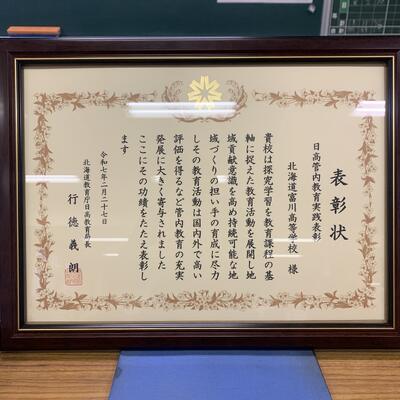 表彰状
日高管内教育実践表彰
北海道富川高等学校 様
貴校は探究学習を教育課程の基
軸に捉えた教育活動を展開し地
域貢献意識を高め持続可能な地
域づくりの担い手の育成に尽力
しその教育活動は国内外で高い
評価を得るなど管内教育の充実
発展に大きく寄与されました
ここにその功績をたたえ表彰し
ます
令和七年二月二十七日
北海道教育庁日高教育局長
行徳義朗